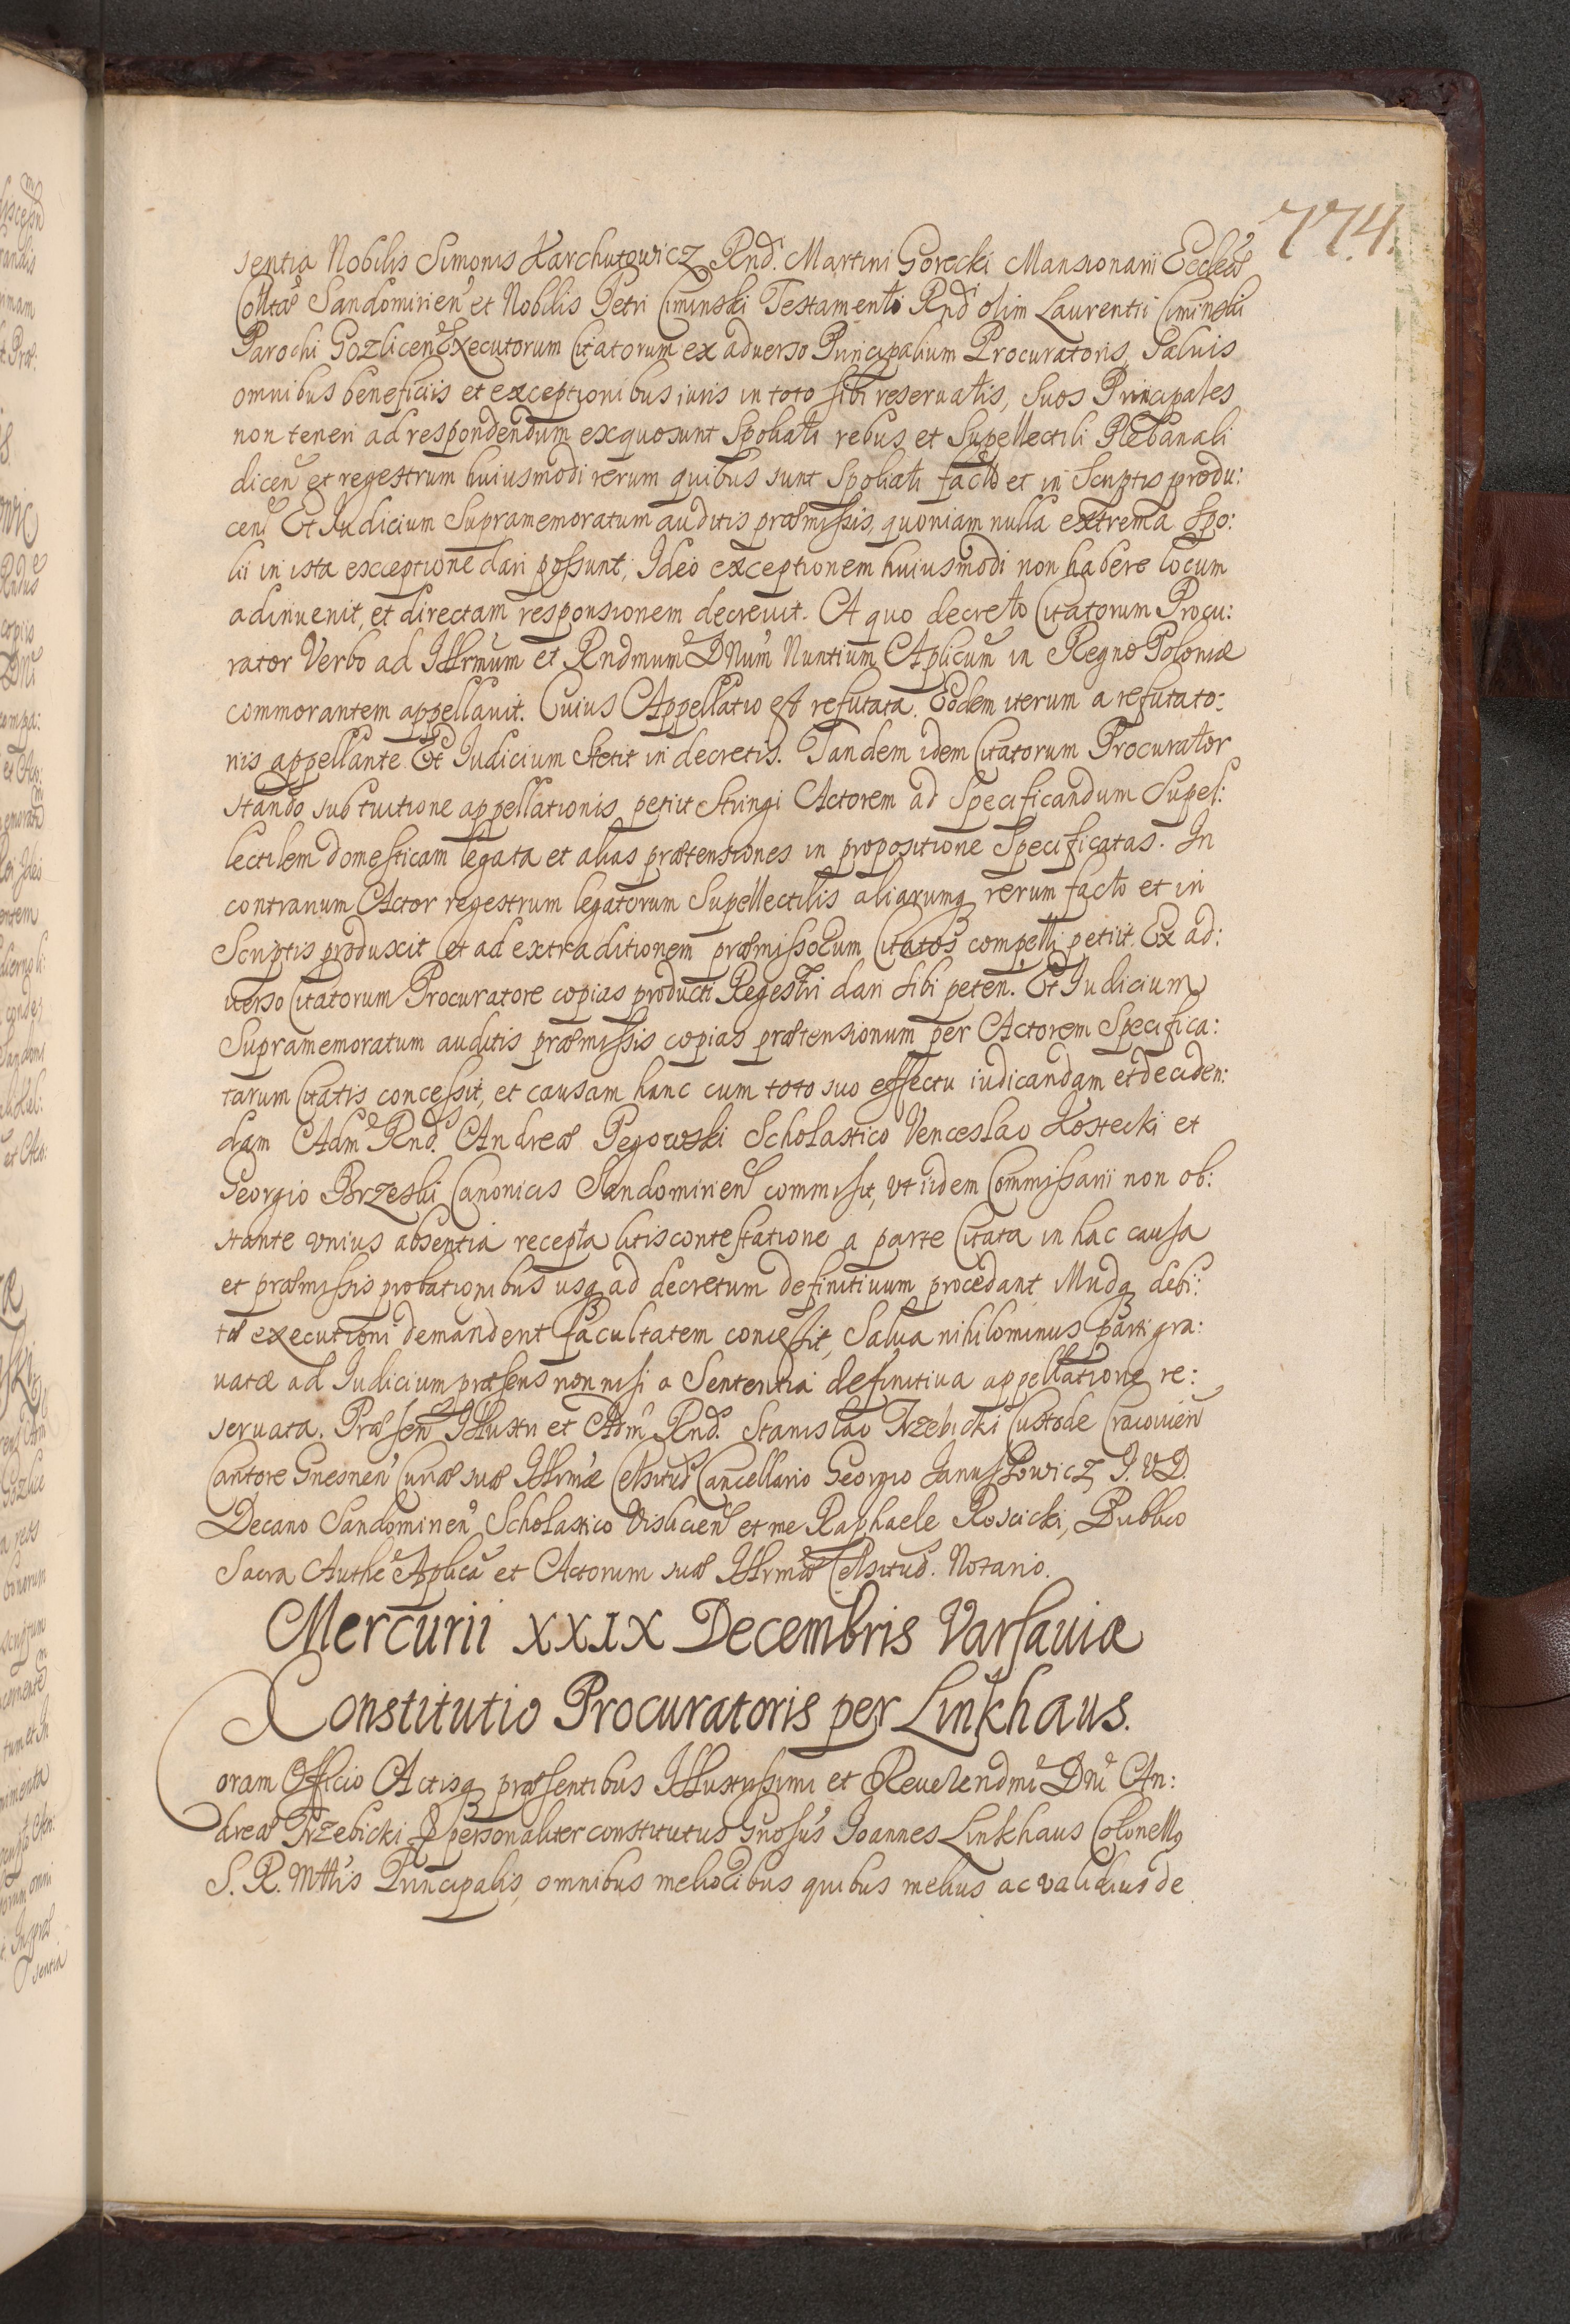 774.
sentia Nobilis Simonis Karchutowicz Rnd. Martini Gorecki Mansionarii Eccleæ
Colltæ Sandomirien et Nobilis Petri Ciminski Testamenti Rnd olim Laurentii Ciminski
Parochi Gozlicen Executorum Citatorum ex adverso Principalium Procuratoris, Salvis
omnibus beneficiis et exceptionibus iuris in toto sibi reservatis, Suos Principales
non teneri ad respondendum ex quo sunt Spoliati rebus et Supellectili Plebanali
dicen et regestrum huiusmodi rerum quibus sunt Spoliati facto et in Scriptis produ:
cen Et Iudicium Supramemoratum auditis præmissis, quoniam nulla extrema Spo:
lii in ista exceptione dari possunt, Ideo exceptionem huiusmodi non habere locum
adinvenit, et directam responsionem decrevit. A quo decreto Citatorum Procu:
rator Verbo ad Illrmum et Rndmum Dnum Nuntium Aplicum in Regno Poloniæ
commorantem appellavit. Cuius Appellatio est refutata. Eodem iterum a refutato:
riis appellante Et Iudicium Stetit in decretis. Tandem idem Citatorum Procurator
stando sub tuitione appellationis petiit Stringi Actorem ad Specificandum Supel:
lectilem domesticam legata et alias prætensiones in propositione Specificatas. In
contrarium Actor regestrum legatorum Supellectilis aliarumq rerum facto et in
Scriptis produxit et ad extraditionem præmissorum Citatos compelli petiit. Ex ad:
verso Citatorum Procuratore copias producti Regestri dari sibi peten. Et Iudicium
Supramemoratum auditis præmissis copias prætensionum per Actorem Specifica:
tarum Citatis concessit, et causam hanc cum toto suo effectu iudicandam et deciden:
dam Adm Rnd. Andreæ Pegowski Scholastico Venceslao Kostecki et
Georgio Brzeski Canonicis Sandomirien commisit, ut iidem Commissarii non ob:
stante unius absentia recepta litis contestatione a parte Citata in hac causa
et præmissis probationibus usq ad decretum definitivum procedant illudq debi:
tæ executioni demandent facultatem concessit, Salva nihilominus parti gra:
vatæ ad Iudicium præsens non nisi a Sententia definitiva appellatione re:
servata. Præsen Illustri et Adm Rnd. Stanislao Trzebicki Custode Cracovien
Cantore Gnesnen Curiæ suæ Illrmæ Celsitud Cancellario Georgio Januszowicz I. V. D.
Decano Sandomirien Scholastico Vislicien et me Raphaele Roscicki, Publico
Sacra Authe Aplica et Actorum suæ Illrmæ Celsitud. Notario.
Mercurii XXIX Decembris Varsaviæ
Constitutio Procuratoris per Linkhaus.
oram Officio Actisq præsentibus Illustrissimi et Reverendmi Dni An:
dreæ Trzebicki personaliter constitutus Gnosus Joannes Linkhaus Colonellg
S. R. Mttis Principalis, omnibus melioribus quibus melius ac validius de